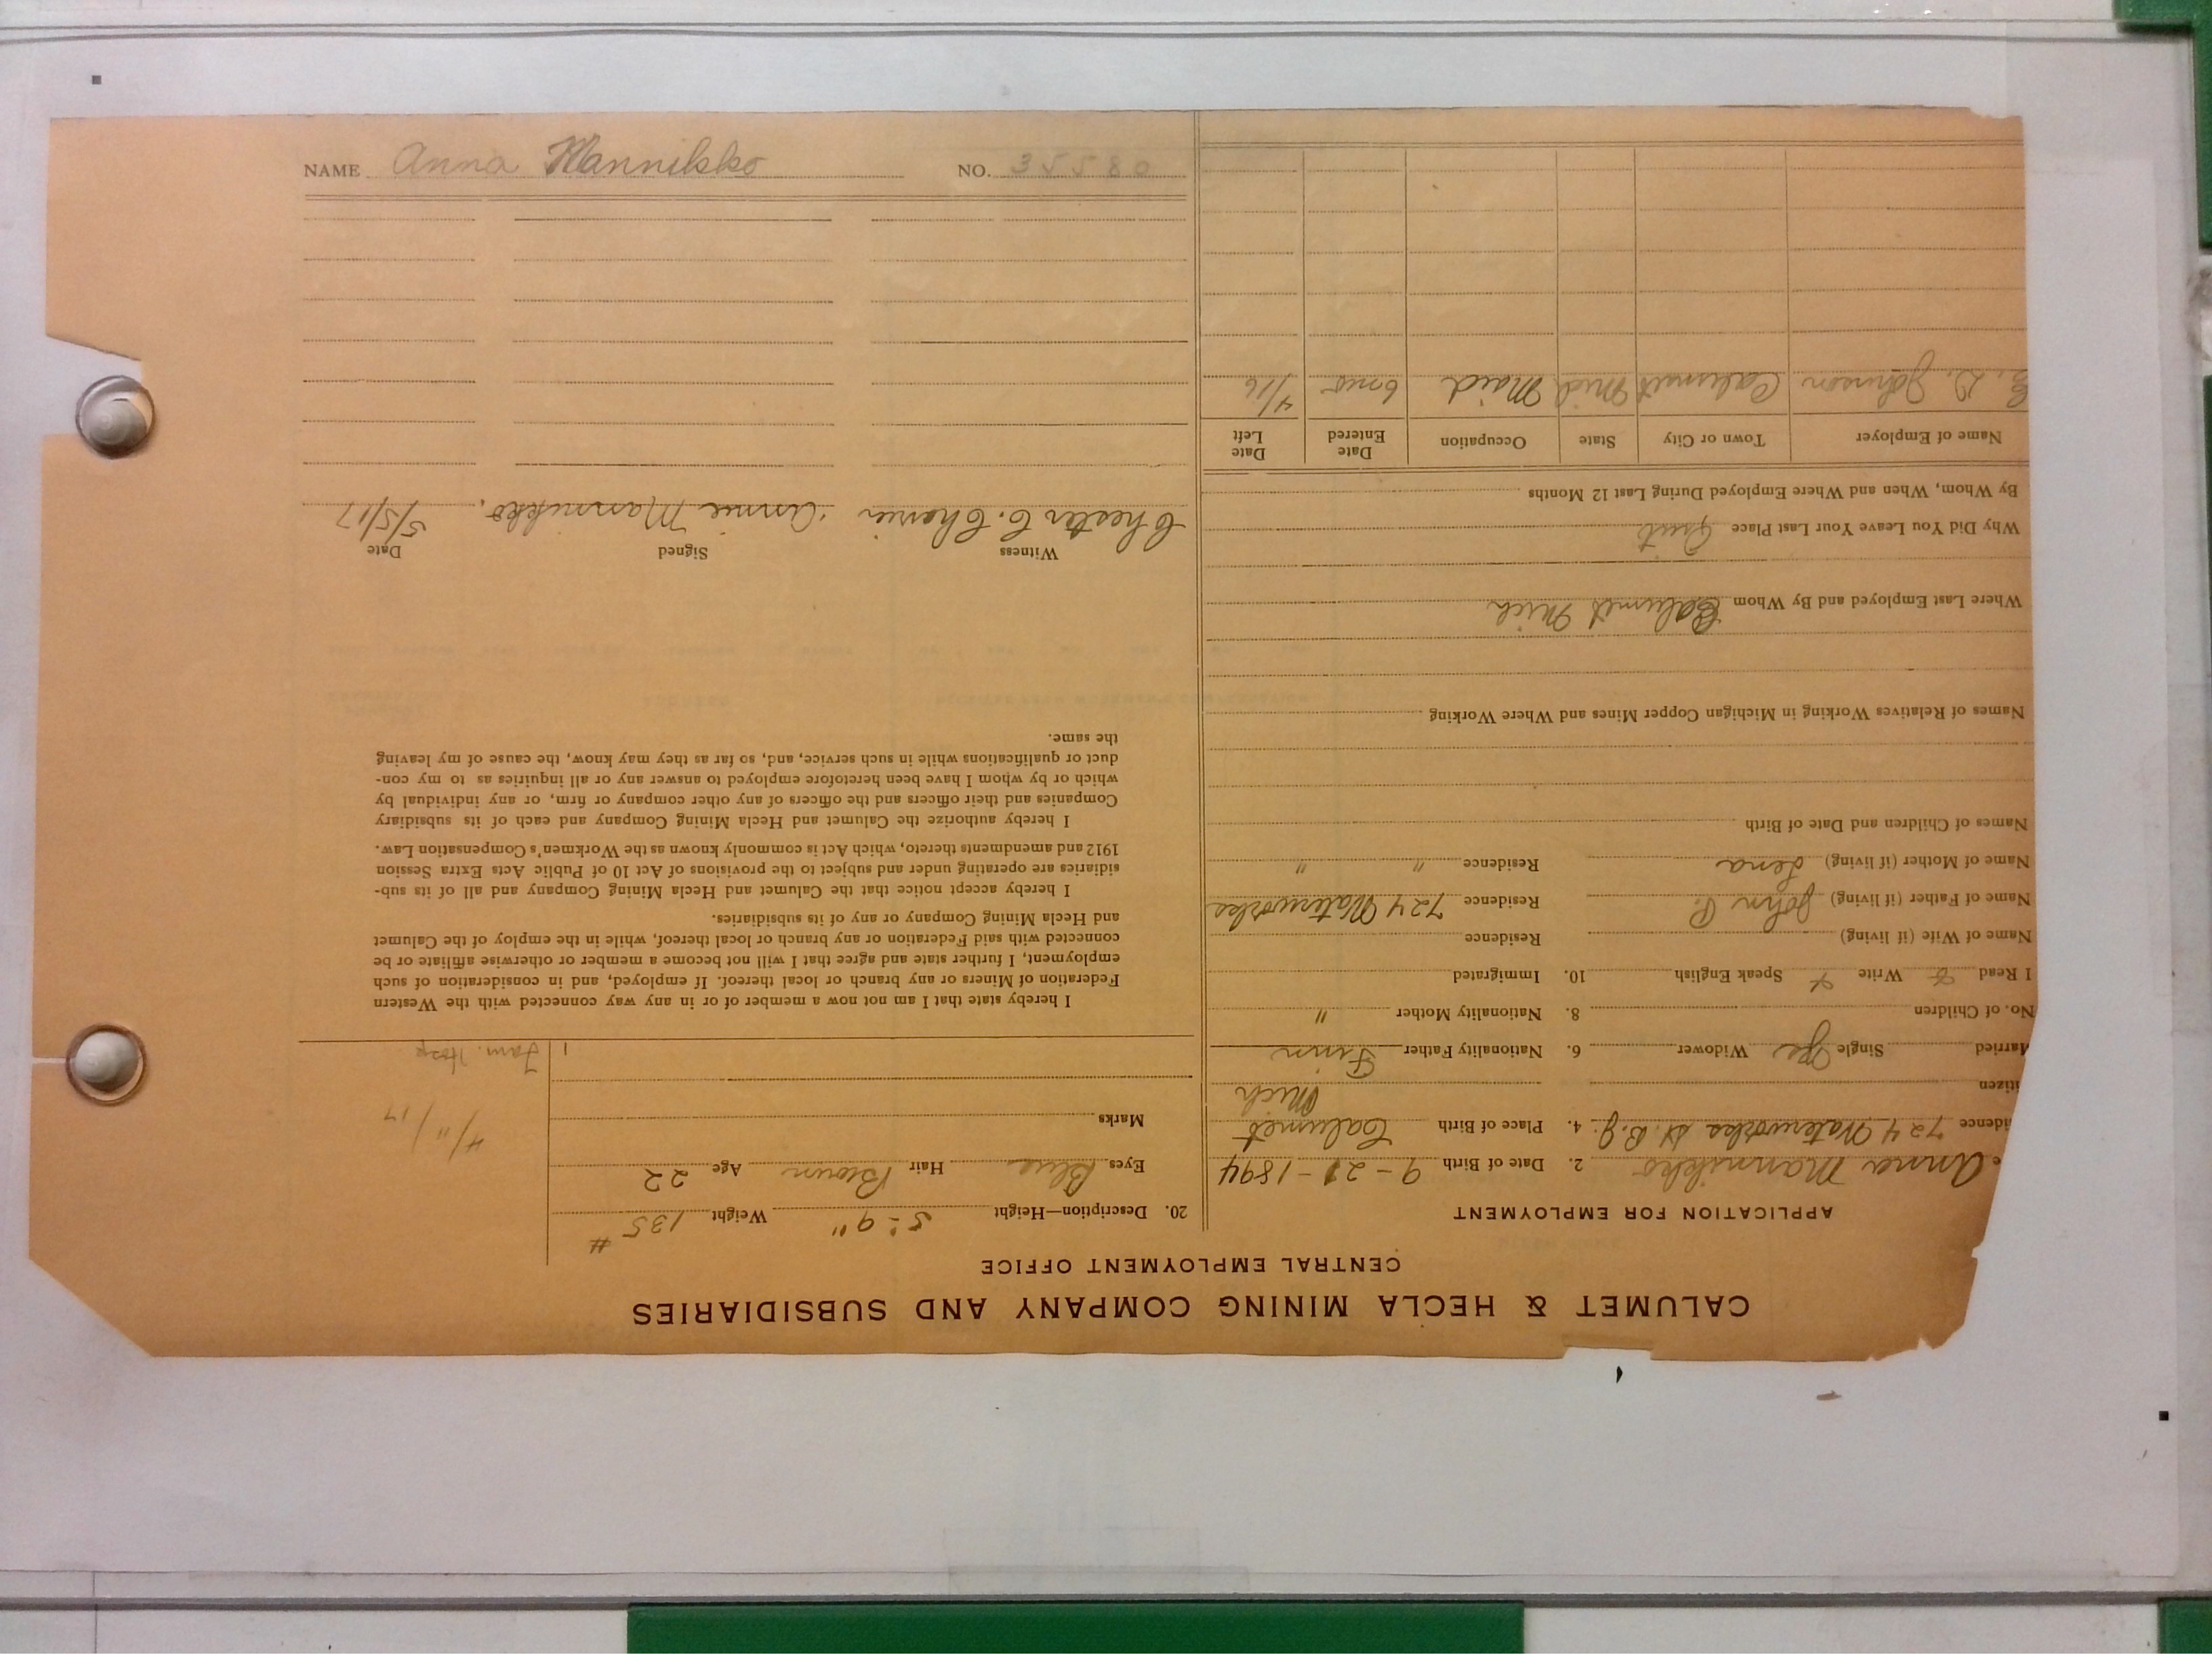 NAME Anna Mannikko NO. 35580
CALUMET & HECLA MINING COMPANY AND SUBSIDIARIES
CENTRAL EMPLOYMENT OFFICE
APPLICATION FOR EMPLOYMENT
e Anna Mannikko 2. Date of Birth 9-21-1894
idence 724 Waterworks St. 4. Place of Birth Calumet
Mich
itizen
Married Single Yes Widower 6. Nationality Father Finn
No. of Children 8. Nationality Mother "
I Read Write Speak English 10. Immigrated
Name of Wife (if living) Residence
Name of Father (if living) John P. Residence 724 Waterworks
Name of Mother (if living) Lena Residence " "
Names of Children and Date of Birth
Names of Relatives Working in Michigan Copper Mines and Where Working
Where Last Employed and By Whom Calumet Mich
Why Did You Leave Your Last Place Quit
By Whom, When and Where Employed During Last 12 Months
Name of Employer Town or City State Occupation Date Entered Date Left
Johnson Calumet Mich Maid 6 mos 4/16
20. Description—Height 5'-9" Weight 135#
Eyes Blue Hair Brown Age 22
Marks
4/11/17
Jam. Hosp
I hereby state that I am not now a member of or in any way connected with the Western
Federation of Miners or any branch or local thereof. If employed, and in consideration of such
employment, I further state and agree that I will not become a member or otherwise affiliate or be
connected with said Federation or any branch or local thereof, while in the employ of the Calumet
and Hecla Mining Company or any of its subsidiaries.
I hereby accept notice that the Calumet and Hecla Mining Company and all of its sub-
sidiaries are operating under and subject to the provisions of Act 10 of Public Acts Extra Session
1912 and amendments thereto, which Act is commonly known as the Workmen's Compensation Law.
I hereby authorize the Calumet and Hecla Mining Company and each of its subsidiary
Companies and their officers and the officers of any other company or firm, or any individual by
which or by whom I have been heretofore employed to answer any or all inquiries as to my con-
duct or qualifications while in such service, and, so far as they may know, the cause of my leaving
the same.
Witness Signed Date
Chester C. Annie Mannikko. 5/5/17